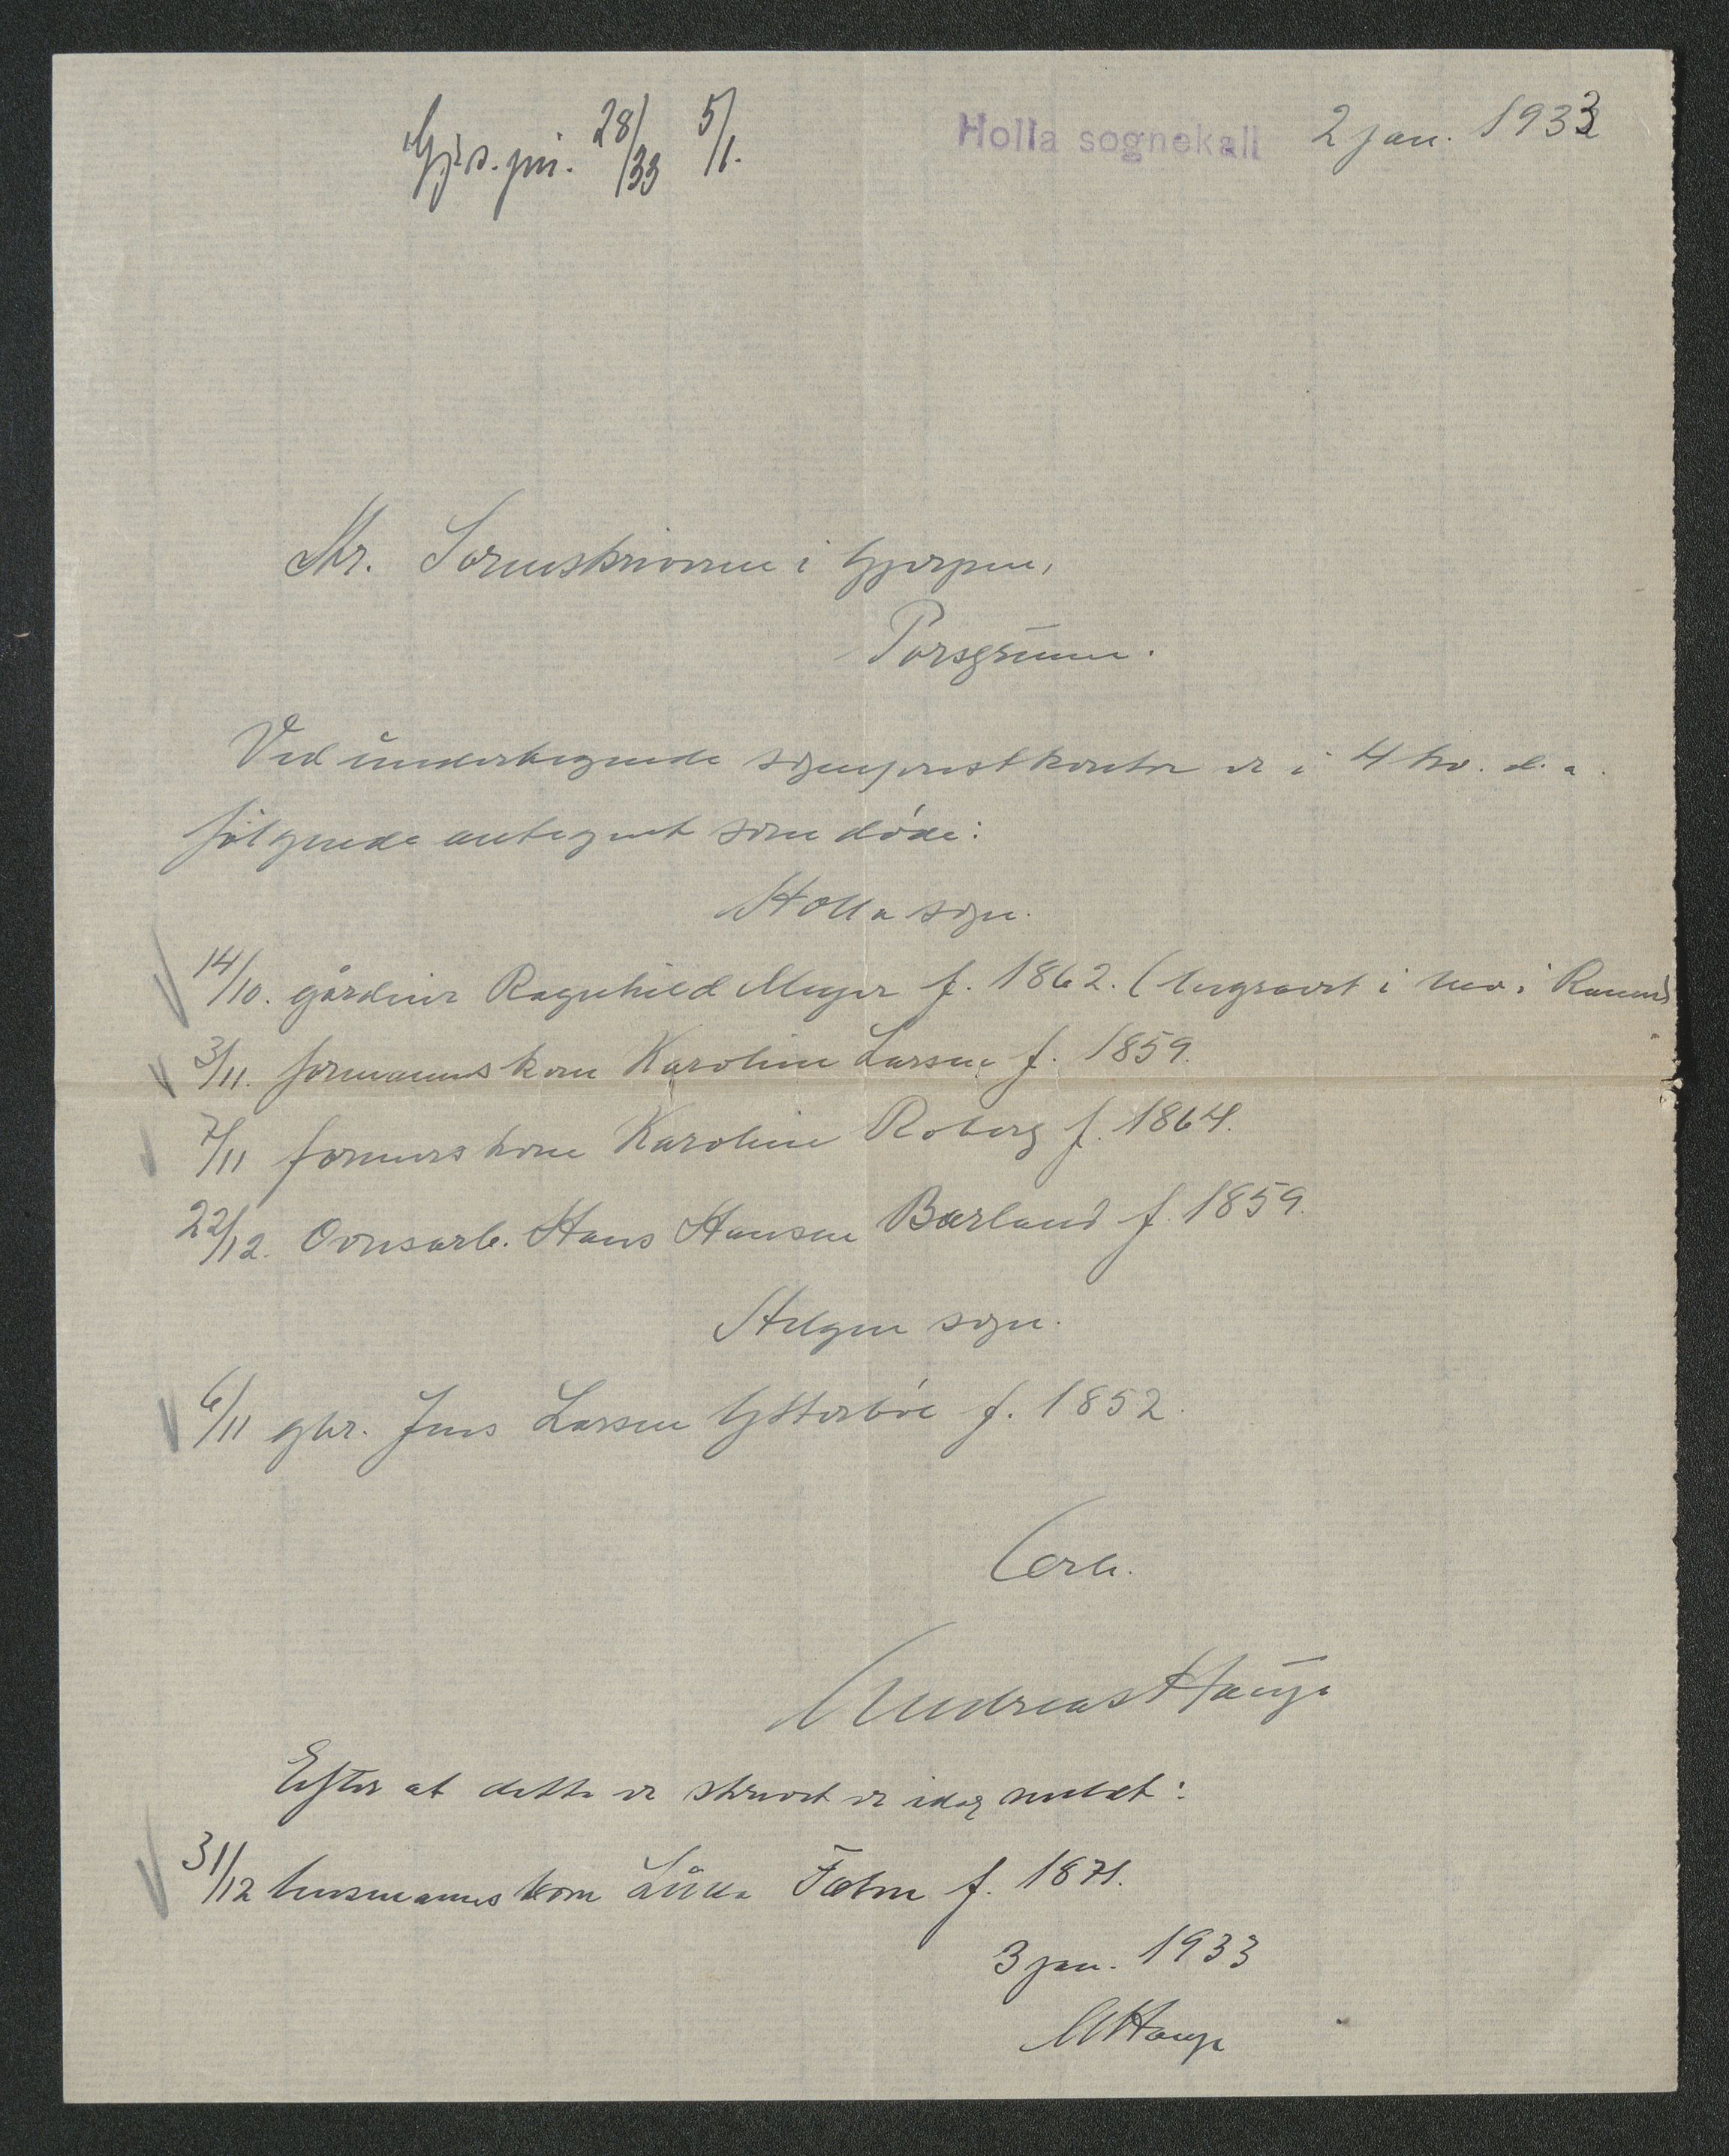 28/33 5/1.
Holla sognekall 2 jan. 1933
Hr. Sorenskriveren i Gjerpen,
Porsgrunn.
Ved undertegnede sogneprestkontor er i 4 kv. d. a.
følgende antegnet som døde:
Holla sogn.
14/10. gårdeier Ragnhild Meyer f. 1862. (begravet i Mo i Rana)
3/11. formannskone Karoline Larsen f. 1859.
7/11 formerskone Karoline Roberg f. 1864.
22/12. Ovnsarb. Hans Hansen Barland f. 1859.
Helgen sogn.
6/11 gbr. Jens Larsen Ytterbøe f. 1852.
Erb.
Andreas Hauge
Efter at dette er skrevet er idag meldt:
31/12 husmannskone f. 1871.
3 jan. 1933
AHauge